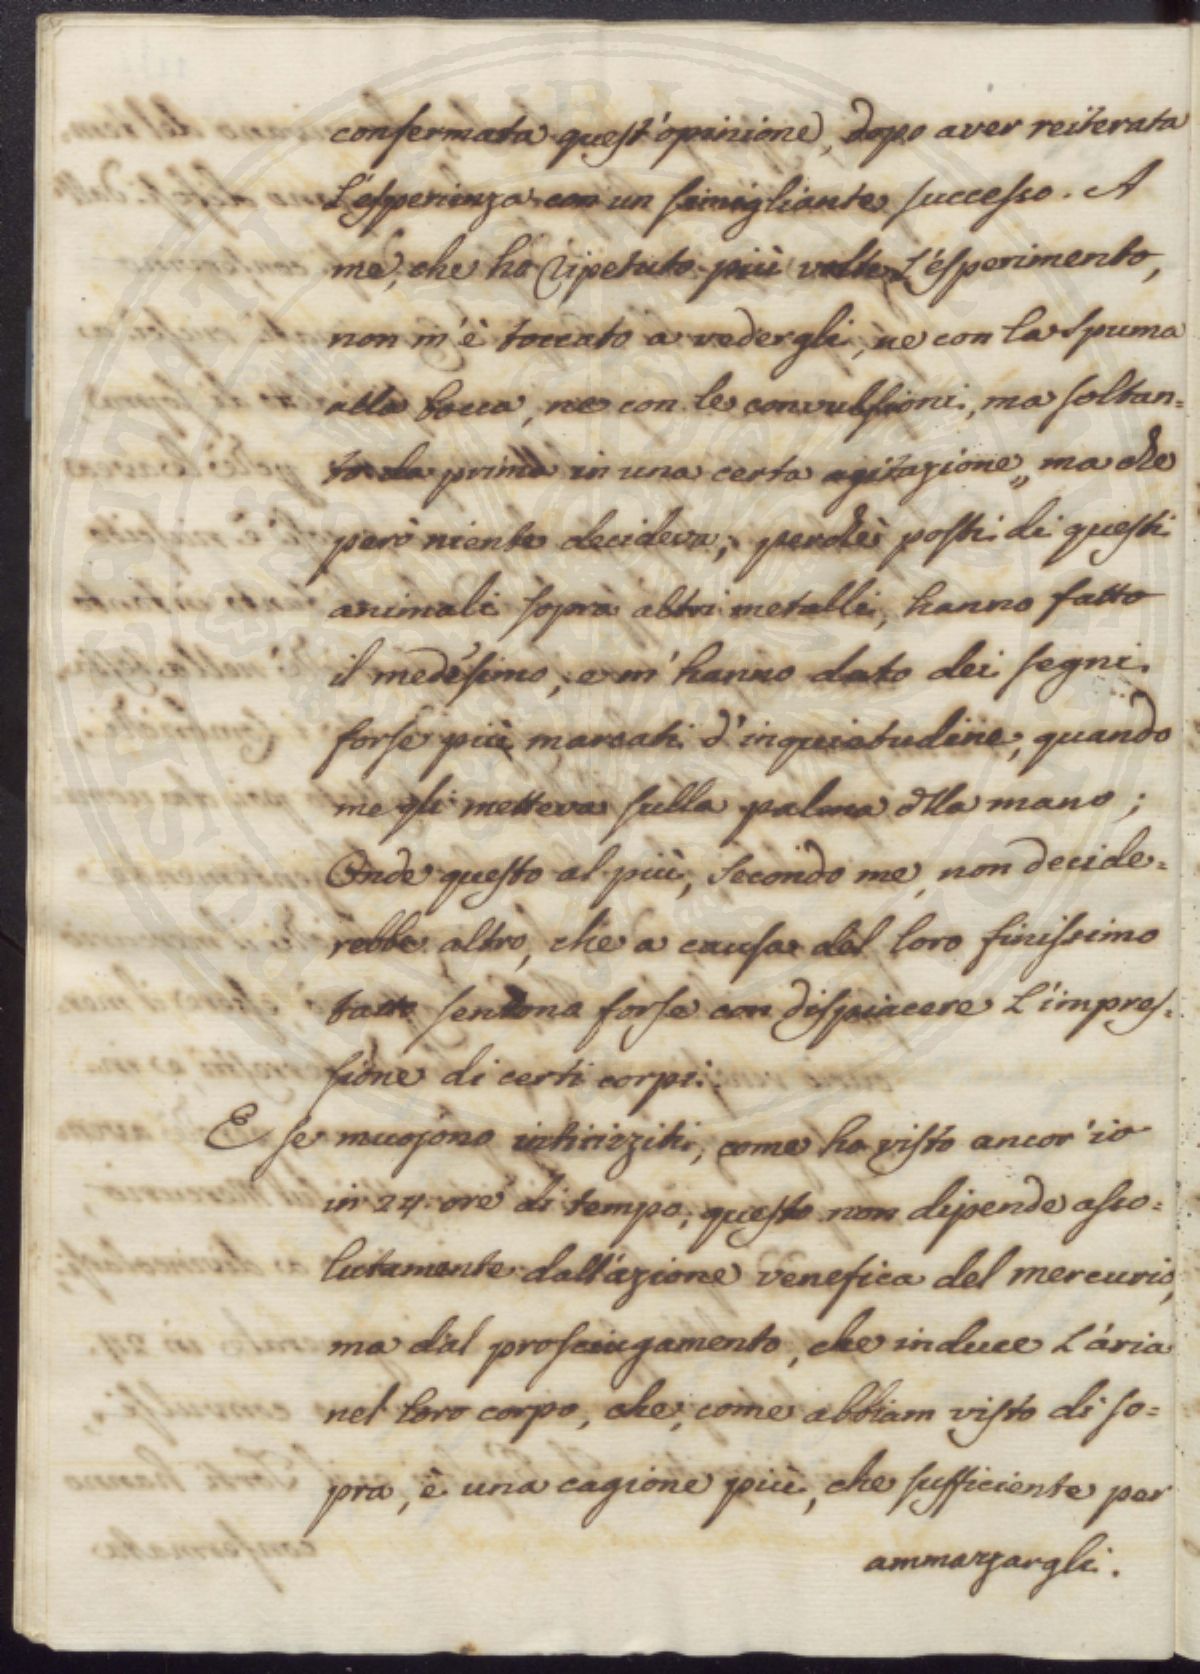 confermata quest'opinione, dopo aver reiterata
L'esperienza con un simigliante successo. A
me, che ho ripetuto più volte L'esperimento,
non m'è toccato a vedergli, ne con la spuma
alla bocca, ne con le convulsioni, ma soltan=
to da prima in una certa agitazione, ma che
però niente decideva; perchè posti di questi
animali sopra altri metalli, hanno fatto
il medesimo, e m'hanno dato dei segni
forse più marcati d'inquietudine, quando
me gli metteva sulla palma della mano;
Onde questo al più, secondo me, non decide=
rebbe altro, che a causa del loro finissimo
tatto sentono forse con dispiacere L'impres=
sione di certi corpi.
E se muojono intirizziti, come ho visto ancor'io
in 24. ore di tempo, questo non dipende asso=
lutamente dall'azione venefica del mercurio,
ma dal prosciugamento, che induce L'aria
nel loro corpo, che, come abbiam visto di so=
pra, è una cagione più, che sufficiente per
ammazzargli.